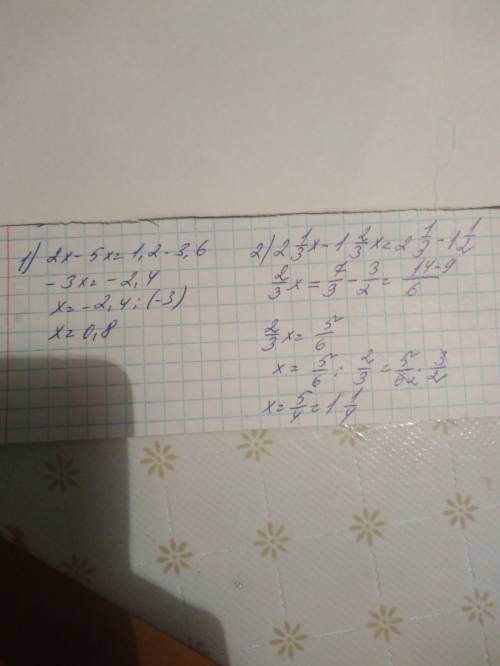 1) 2x - 5x = 1,2 - 3,6
- 3x = - 2,4
x = - 2,4 : (-3)
x = 0,8
2) 2 1/3 x - 1 2/3 x = 2 1/3 - 1 1/2
2/3 x = 7/3 - 3/2 = 14-9/6
2/3 x = 5/6
x = 5/6 : 2/3 = 5/6 2 · 3/2
x = 5/4 = 1 1/4